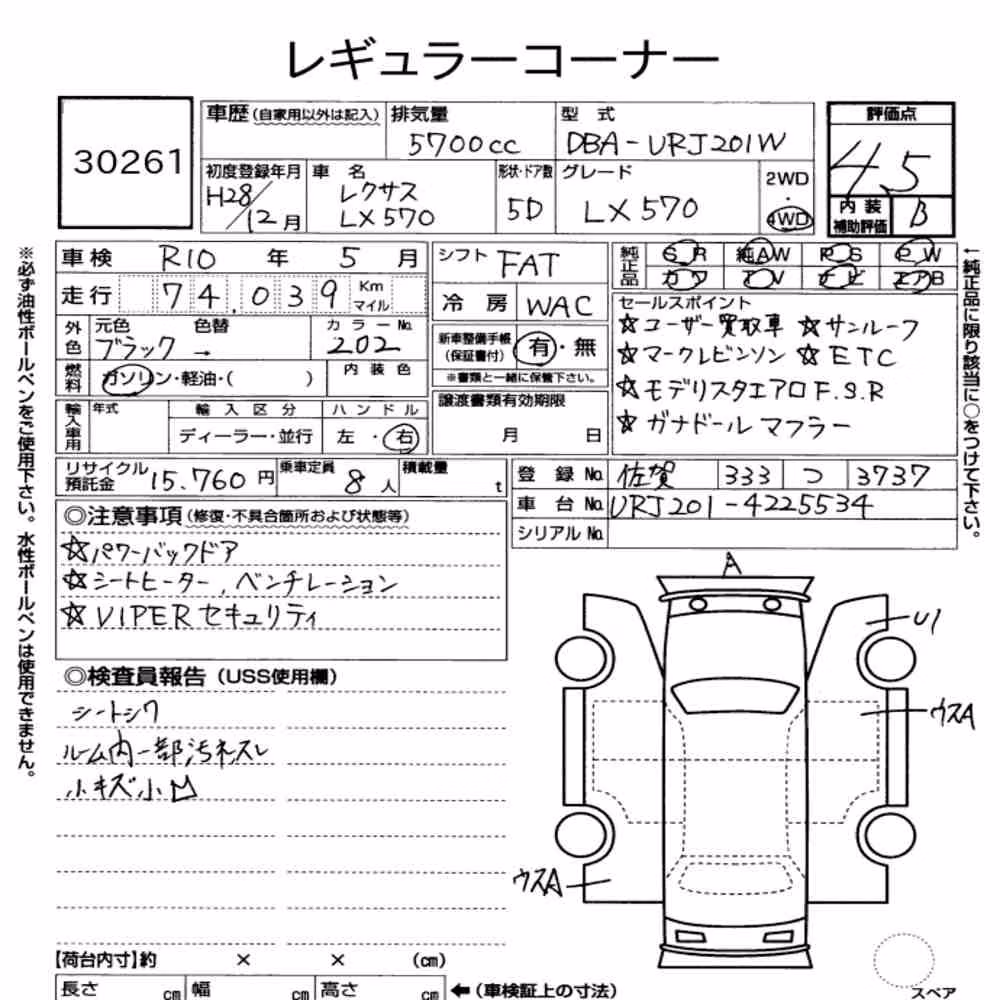 レギュラーコーナー
30261
車歴(自家用以外は記入)
排気量
5700cc
型 式
DBA-URJ201W
評価点
4.5
内装
補助評価
B
初度登録年月
H28/12月
車 名
レクサス
LX570
形状・ドア数
5D
グレード
LX570
2WD
・
4WD
※必ず油性ボールペンをご使用下さい。水性ボールペンは使用できません。
車検 R10 年 5 月
走行 74,039 Km マイル
外色
元色 色替
ブラック →
カラーNo.
202
燃料
ガソリン・軽油・( )
内装色
輸入車用
年式
輸入区分
ディーラー・並行
ハンドル
左・右
シフト FAT
冷房 WAC
新車整備手帳
(保証書付)
有・無
※書類と一緒に保管下さい。
譲渡書類有効期限
月 日
純正品
SR 純AW PS PW
カワ TV ナビ エアB
セールスポイント
☆ユーザー買取車 ☆サンルーフ
☆マークレビンソン ☆ETC
☆モデリスタエアロF.S.R
☆ガナドールマフラー
←純正品に限り該当に○をつけて下さい。
リサイクル
預託金
15.760円
乗車定員
8人
積載量
t
登録No. 佐賀 333 つ 3737
車台No. URJ201-4225534
シリアルNo.
◎注意事項(修復・不具合箇所および状態等)
☆パワーバックドア
☆シートヒーター,ベンチレーション
☆VIPERセキュリティ
◎検査員報告(USS使用欄)
シートシワ
ルーム内一部汚れスレ
小キズ小凹
A
U1
ウスA
ウスA
【荷台内寸】約 × × (cm)
長さ cm 幅 cm 高さ cm ←(車検証上の寸法)
スペア